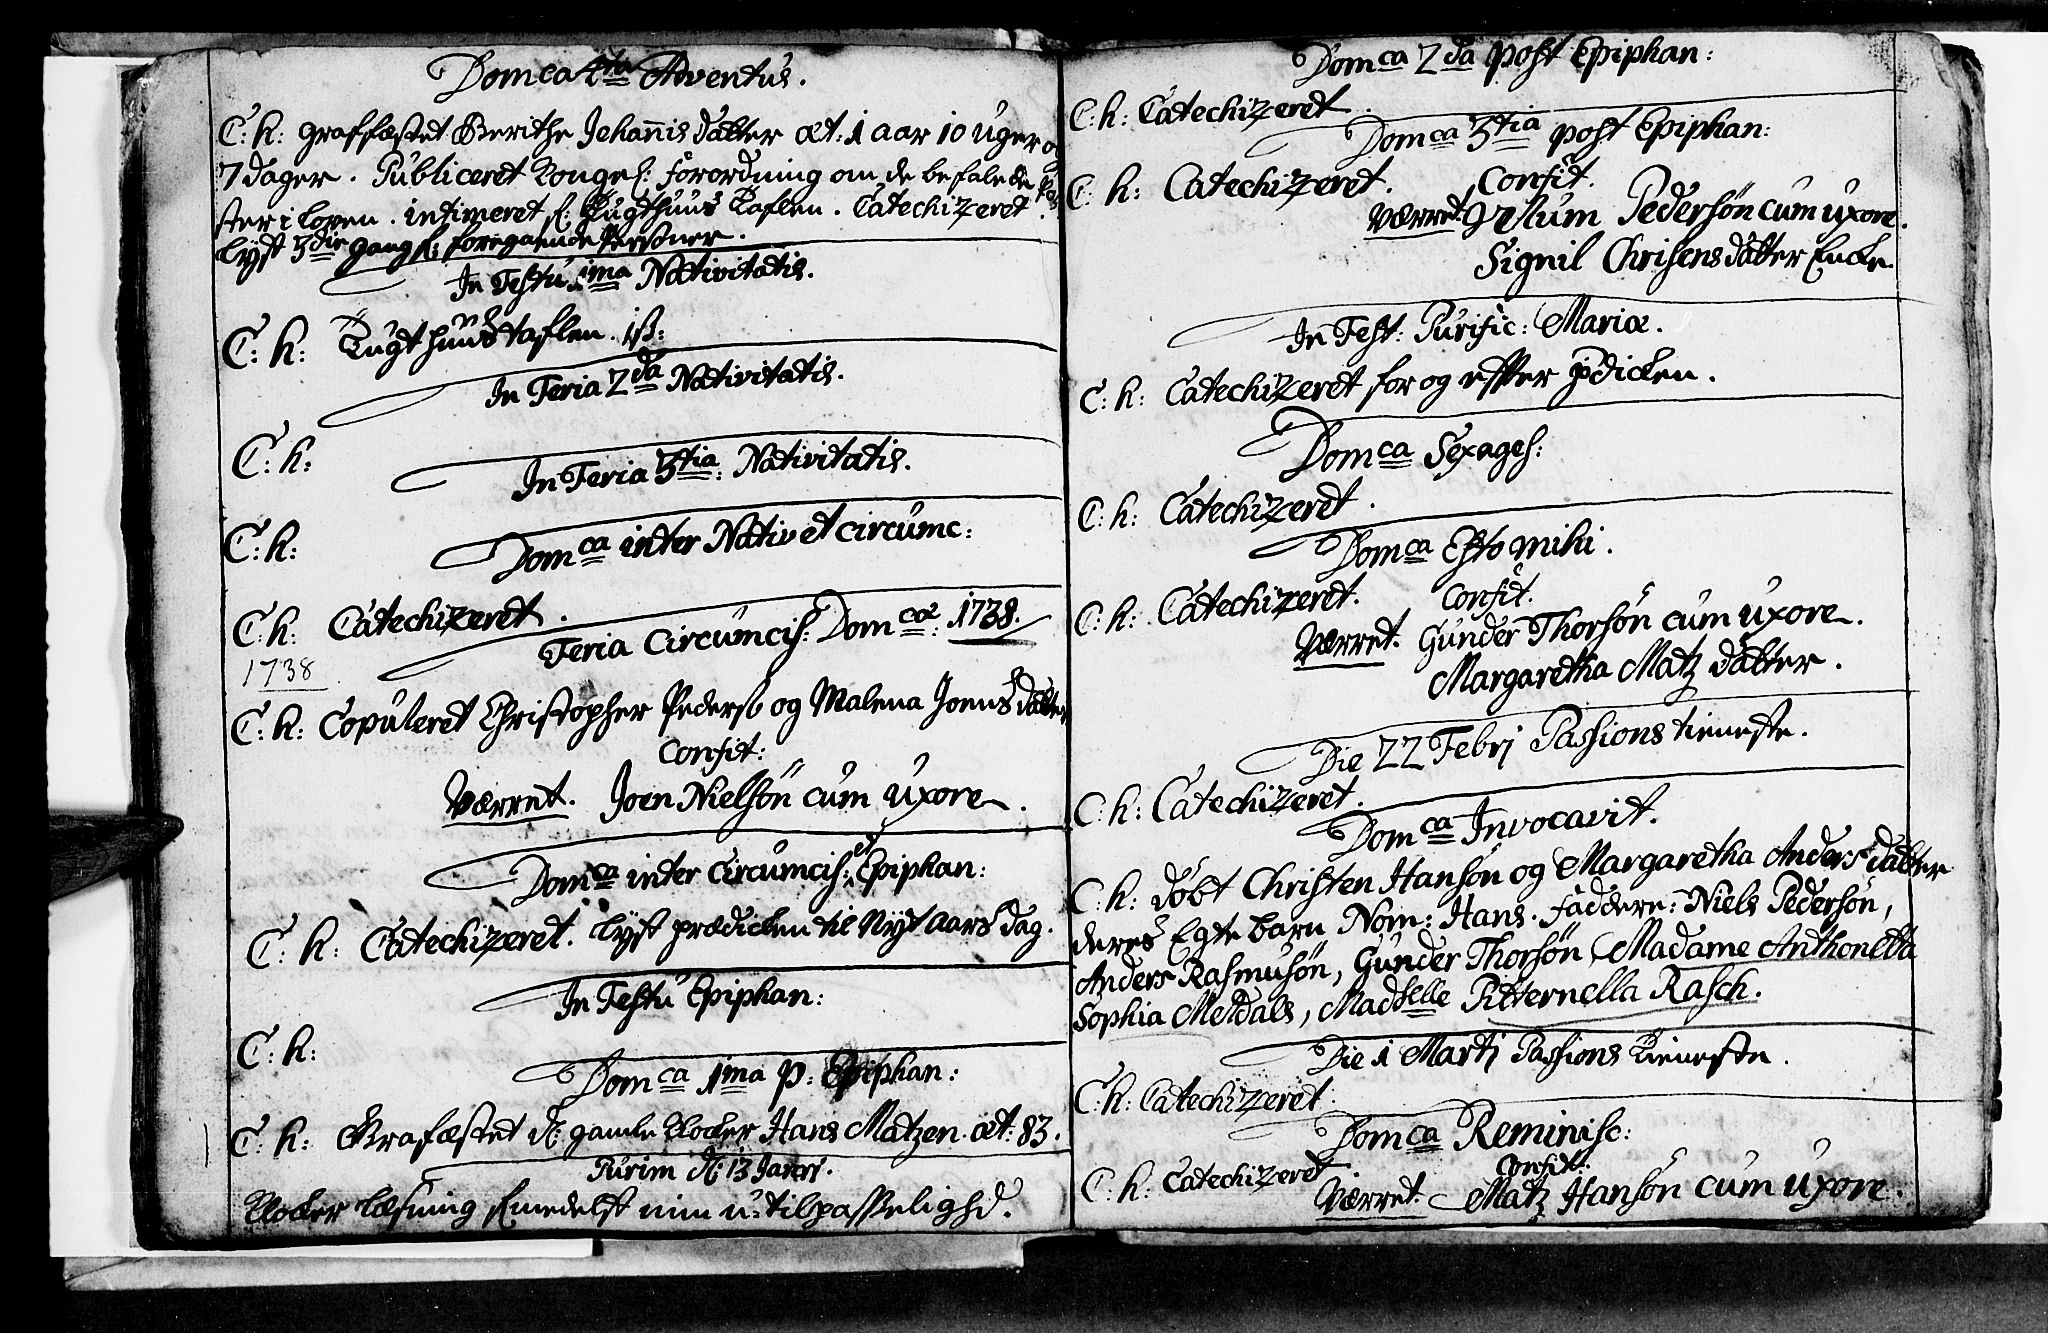 Domca 4ta Adventus.
C: K: graffæstet Berithe Johannis datter æt: 1 aar 10 Uger og
7 dager. Publiceret Kongel: Forordning om de befalede
ster i loven. intimeret Tugthuus Taflen. Catechizeret.
lyst 3die gang f: foregaaende Personer.
In Festu 1ma Nativitatis.
C: K: Tugthuus taflen.
In Feria 2da Nativitatis.
C: K:
In Feria 3tia Nativitatis.
C: K:
Domca inter Nativ et circumc:
C: K: Catechizeret.
Feria Circumcis: Domcæ: 1738.
1738
C: K: Copuleret Christopher Peders: og Malena Joens datter
Confit:
Værret. Joen Nielsön cum Uxore.
Domca inter Circumcis: et Epiphan:
C: K: Catechizeret. lyst prædicken til Nyt aars dag.
In Festu Epiphan:
C: K:
Domca 1ma p: Epiphan:
C: K: Grafæstet d: gamle Klocker Hans Matzen. æt: 83.
Purim d: 13 Januarj.
Klocker læsning formedelst min u-tilpasselighd.
Domca 2da post Epiphan:
C: K: Catechizeret.
Domca 3tia post Epiphan:
C: K: Catechizeret. Confit.
Værret. Pedersön cum uxore.
Signil Chrisens datter Encke.
In Fest: Purific: Mariæ.
C: K: Catechizeret for og effter pdicken.
Domca Sexages:
C: K: Catechizeret.
Domca Esto mihi.
C: K: Catechizeret. Confit.
Værret. Gunder Thorsön cum uxore.
Margaretha Matz datter.
Die 22 Febrj Passions tieneste.
C: K: Catechizeret.
Domca Invocavit.
C: K: döbt Christen Hansön og Margaretha Anders datter
deres Egte barn Nom: Hans. faddere: Niels Pedersön,
Anders Rasmusön, Gunder Thorsön Madame Anthonetta
Sophia Meldals, Madselle Pitternella Rasch.
Die 1 Martj Passions Tieneste.
C: K: Catechizeret.
Domca Reminisc:
C: K: Catechizeret. Confit:
Værret. Matz Hansön cum uxore.